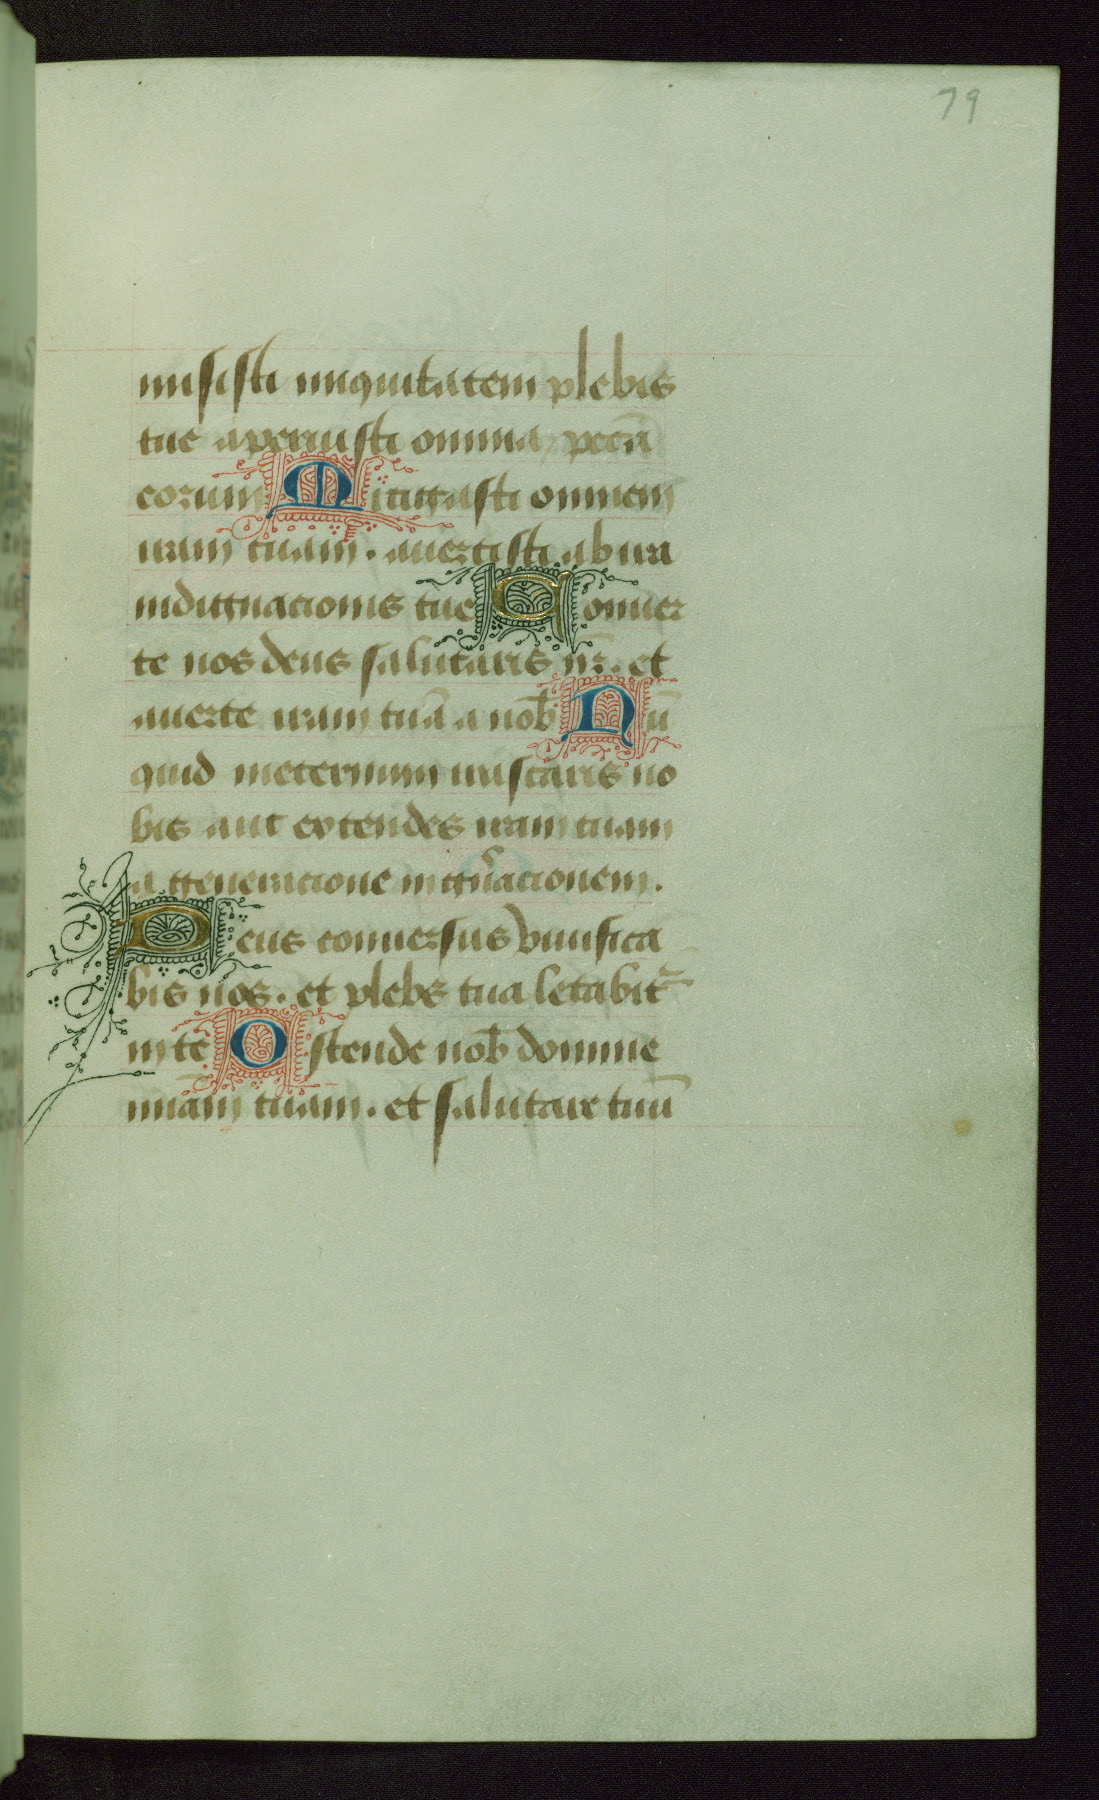 79
misisti iniquitatem plebis
tue aperuisti omnia pctā
eorum Mitigasti omnem
iram tuam. auertisti ab ira
indignacionis tue Conuer
te nos deus salutaris nr̄. et
auerte iram tuā a nob̄ Nū
quid ineternum irascaris no
bis aut extendes iram tuam
a generacione in gn̄acionem.
Deus conuersus viuifica
bis nos. et plebs tua letabit᷑
in te Ostende nob̄ domine
miām tuam. et salutare tuū